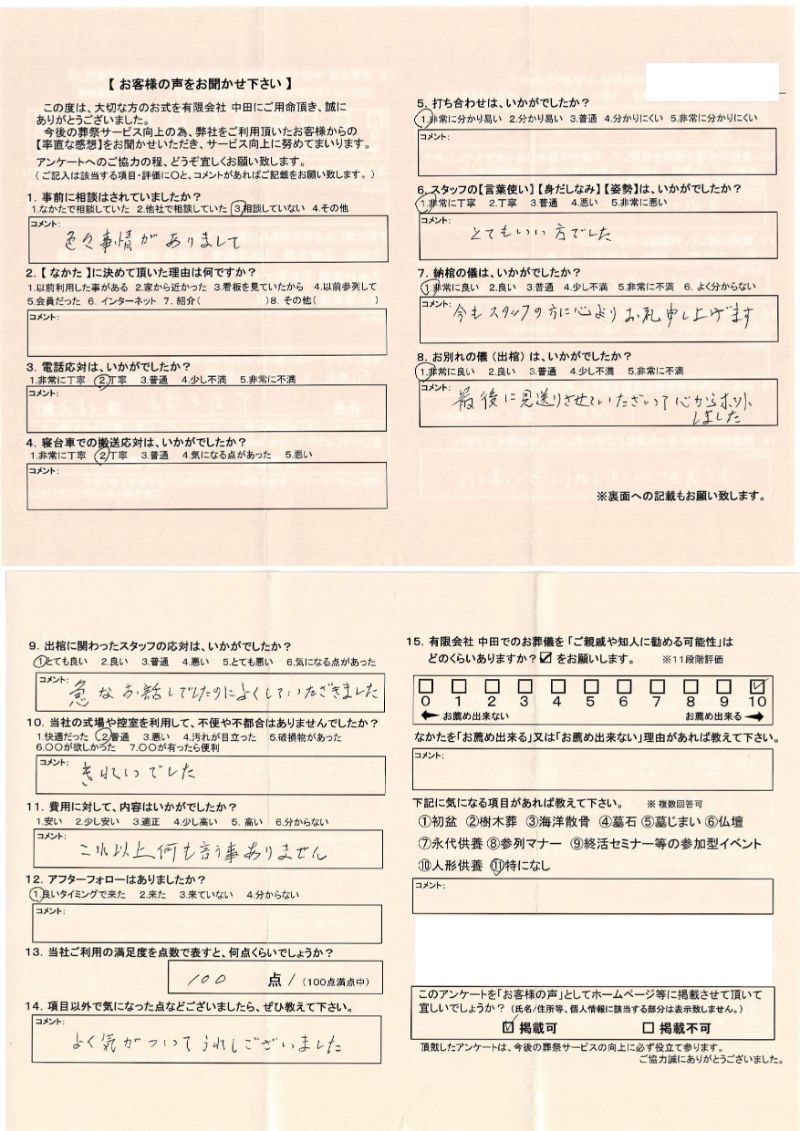 【 お客様の声をお聞かせ下さい 】
この度は、大切な方のお式を有限会社 中田にご用命頂き、誠に
ありがとうございました。
今後の葬祭サービス向上の為、弊社をご利用頂いたお客様からの
【率直な感想】をお聞かせいただき、サービス向上に努めてまいります。
アンケートへのご協力の程、どうぞ宜しくお願い致します。
（ご記入は該当する項目・評価に○と、コメントがあればご記載をお願い致します。）
1. 事前に相談はされていましたか？
1.なかたで相談していた 2.他社で相談していた 3.相談していない 4.その他
コメント:
色々事情がありまして
2.【 なかた 】に決めて頂いた理由は何ですか？
1.以前利用した事がある 2.家から近かった 3.看板を見ていたから 4.以前参列して
5.会員だった 6. インターネット 7. 紹介( )8. その他( )
コメント:
3. 電話応対は、いかがでしたか？
1.非常に丁寧 2.丁寧 3.普通 4.少し不満 5.非常に不満
コメント:
4. 寝台車での搬送応対は、いかがでしたか？
1.非常に丁寧 2.丁寧 3.普通 4.気になる点があった 5.悪い
コメント:
5. 打ち合わせは、いかがでしたか？
1.非常に分かり易い 2.分かり易い 3.普通 4.分かりにくい 5.非常に分かりにくい
コメント:
6. スタッフの【言葉使い】【身だしなみ】【姿勢】は、いかがでしたか？
1.非常に丁寧 2.丁寧 3.普通 4.悪い 5.非常に悪い
コメント:
とてもいい方でした
7. 納棺の儀は、いかがでしたか？
1.非常に良い 2.良い 3.普通 4.少し不満 5.非常に不満 6. よく分からない
コメント:
今もスタッフの方に心よりお礼申し上げます
8. お別れの儀（出棺）は、いかがでしたか？
1.非常に良い 2.良い 3.普通 4.少し不満 5.非常に不満
コメント:
最後に見送りさせていただいて心からホット
しました
※裏面への記載もお願い致します。
9. 出棺に関わったスタッフの応対は、いかがでしたか？
1.とても良い 2.良い 3.普通 4.悪い 5.とても悪い 6.気になる点があった
コメント:
急なお話しでしたのによくしていただきました
10. 当社の式場や控室を利用して、不便や不都合はありませんでしたか？
1.快適だった 2.普通 3.悪い 4.汚れが目立った 5.破損物があった
6.○○が欲しかった 7.○○が有ったら便利
コメント:
きれいでした
11. 費用に対して、内容はいかがでしたか？
1.安い 2.少し安い 3.適正 4.少し高い 5. 高い 6.分からない
コメント:
これ以上何も言う事ありません
12. アフターフォローはありましたか？
1.良いタイミングで来た 2.来た 3.来ていない 4.分からない
コメント:
13. 当社ご利用の満足度を点数で表すと、何点くらいでしょうか？
100 点 / (100点満点中)
14. 項目以外で気になった点などございましたら、ぜひ教えて下さい。
コメント:
よく気がついてうれしございました
15. 有限会社 中田でのお葬儀を「ご親戚や知人に勧める可能性」は
どのくらいありますか？☑をお願いします。 ※11段階評価
0 1 2 3 4 5 6 7 8 9 10
お薦め出来ない お薦め出来る
なかたを「お薦め出来る」又は「お薦め出来ない」理由があれば教えて下さい。
コメント:
下記に気になる項目があれば教えて下さい。 ※ 複数回答可
①初盆 ②樹木葬 ③海洋散骨 ④墓石 ⑤墓じまい ⑥仏壇
⑦永代供養 ⑧参列マナー ⑨終活セミナー等の参加型イベント
⑩人形供養 ⑪特になし
コメント:
このアンケートを「お客様の声」としてホームページ等に掲載させて頂いて
宜しいでしょうか？（氏名/住所等、個人情報に該当する部分は表示致しません。）
☑ 掲載可 □ 掲載不可
頂戴したアンケートは、今後の葬祭サービスの向上に必ず役立て参ります。
ご協力誠にありがとうございました。